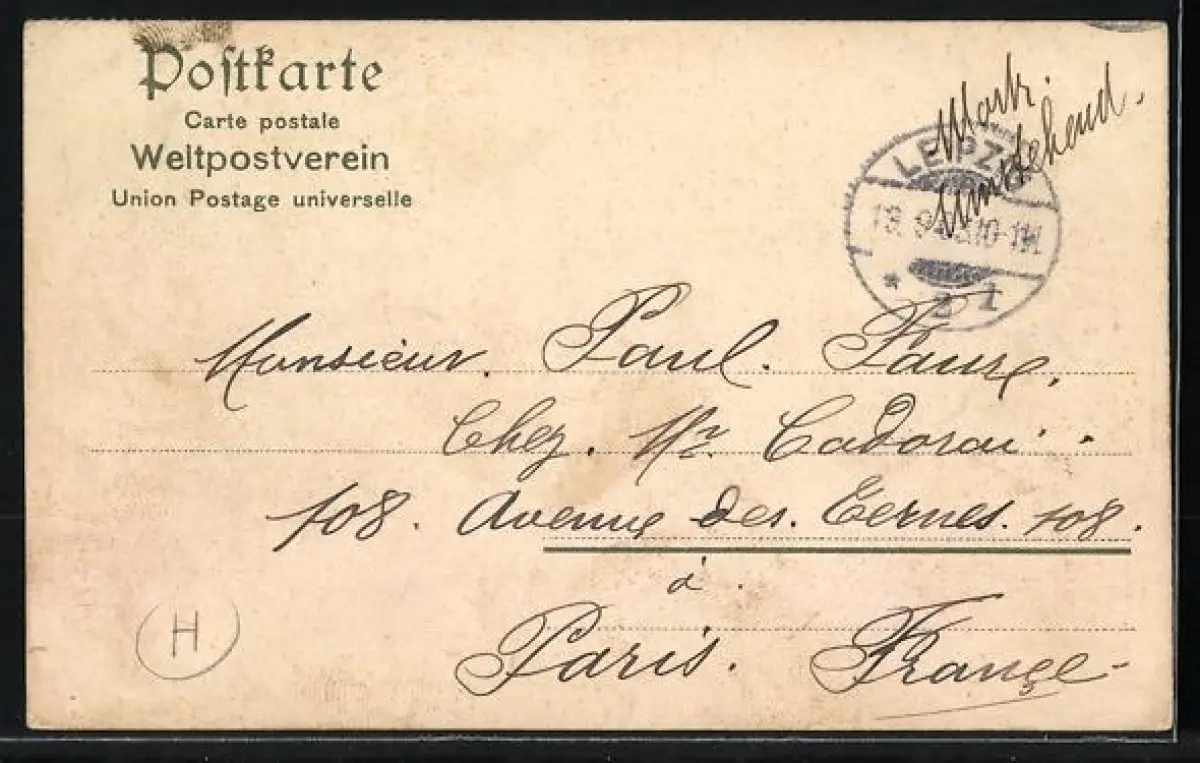 Postkarte
Carte postale
Weltpostverein
Union Postage universelle
Mark.
Umstehend.
LEIPZ
Monsieur. Paul. Faure,
Chez. Mr. Cadorai.
108. Avenue des. Ternes. 108.
à.
Paris. France
H